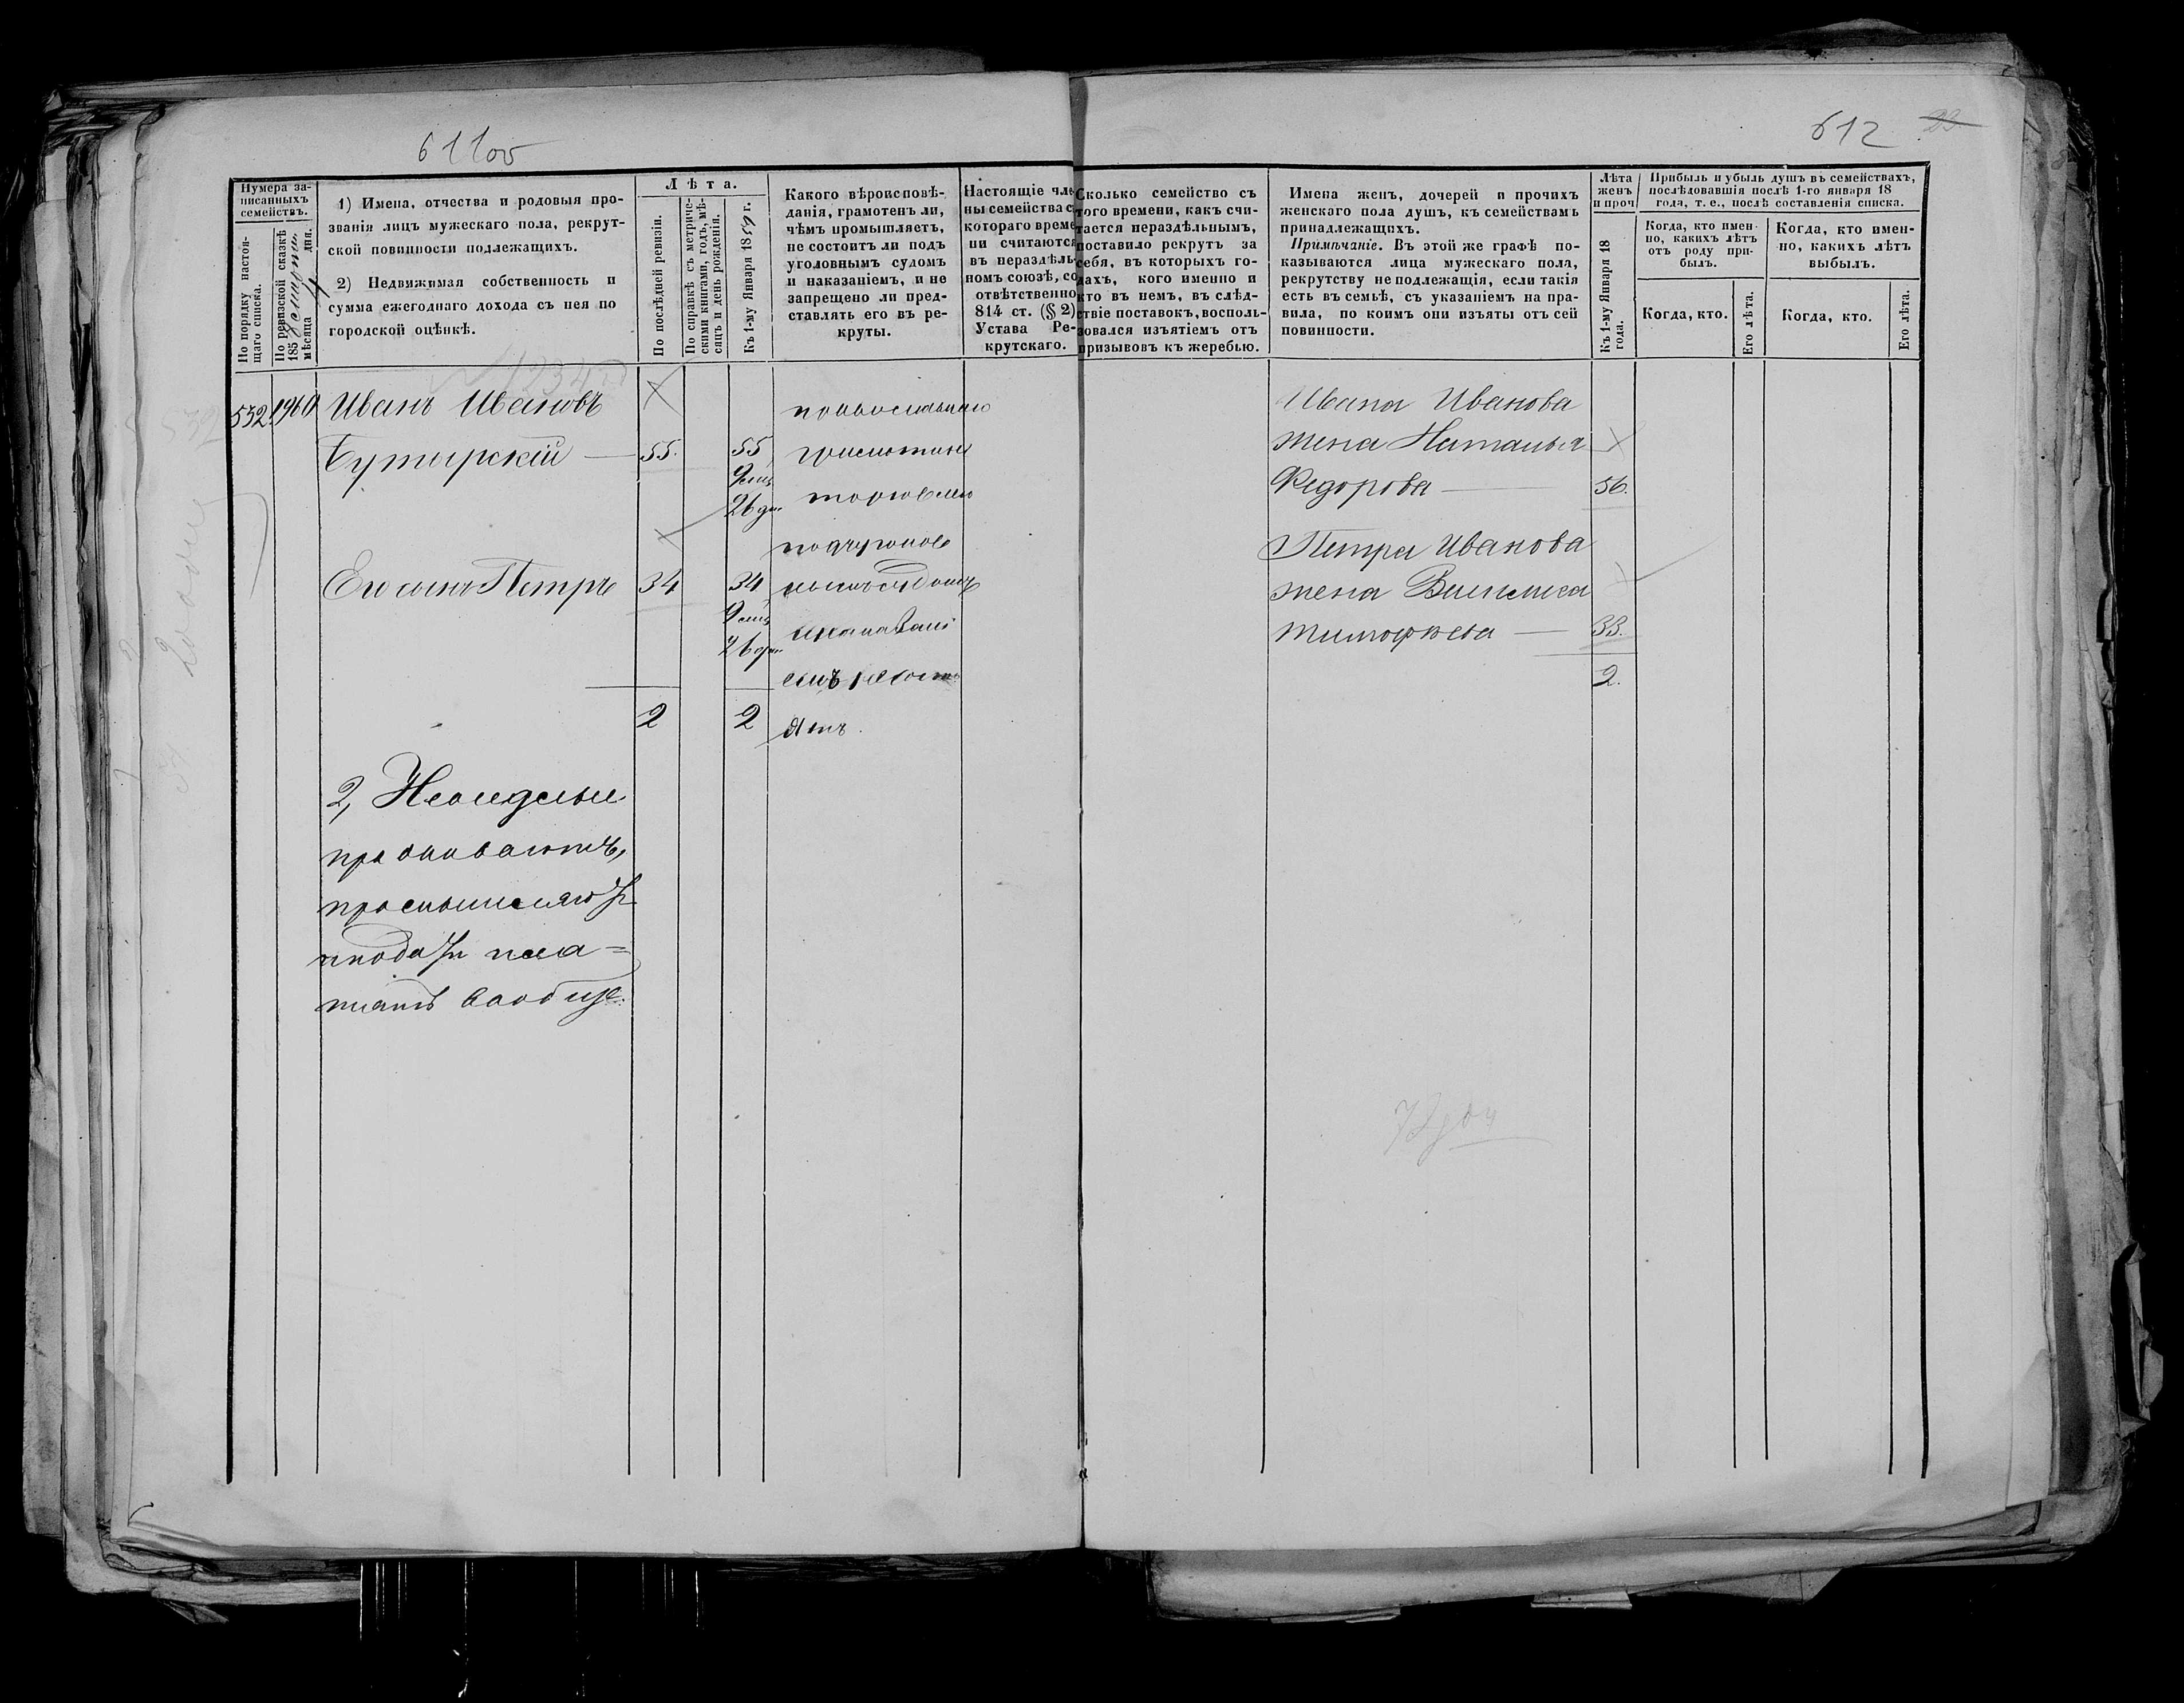 611об
612
Нумера за-
писанныхъ
семействъ.
По порядку настоя-
щаго списка.
По ревизской сказкѣ
185 мѣсяца дня.
1) Имена, отчества и родовыя про-
званія лицъ мужескаго пола, рекрут-
ской повинности подлежащихъ.
2) Недвижимая собственность и
сумма ежегоднаго дохода съ нея по
городской оцѣнкѣ.
Лѣта.
По послѣдней ревизіи.
По справкѣ съ метриче-
скими книгами, годъ, мѣ-
сяцъ и день рожденія.
Къ 1-му Января 1859 г.
Какого вѣроисповѣ-
данія, грамотенъ ли,
чѣмъ промышляетъ,
не состоитъ ли подъ
уголовнымъ судомъ
и наказаніемъ, и не
запрещено ли пред-
ставлять его въ ре-
круты.
Настоящіе чле-
ны семейства съ
котораго време-
ни считаются
въ нераздѣль-
номъ союзѣ, со-
отвѣтственно
814 ст. (§ 2)
Устава Ре-
крутскаго.
Сколько семейство съ
того времени, какъ счи-
тается нераздѣльнымъ,
поставило рекрутъ за
себя, въ которыхъ го-
дахъ, кого именно и
кто въ немъ, въ слѣд-
ствіе поставокъ, восполь-
зовался изъятіемъ отъ
призывовъ къ жеребью.
Имена женъ, дочерей и прочихъ
женскаго пола душъ, къ семействамъ
принадлежащихъ.
Примѣчаніе. Въ этой же графѣ по-
казываются лица мужескаго пола,
рекрутству не подлежащія, если такія
есть въ семьѣ, съ указаніемъ на пра-
вила, по коимъ они изъяты отъ сей
повинности.
Лѣта
женъ
и проч
Къ 1-му Января 18
года.
Прибыль и убыль душъ въ семействахъ,
послѣдовавшія послѣ 1-го января 18
года, т. е., послѣ составленія списка.
Когда, кто имен-
но, какихъ лѣтъ
отъ роду при-
былъ.
Когда, кто имен-
но, какихъ лѣтъ
выбылъ.
Когда, кто.
Его лѣта.
Когда, кто.
Его лѣта.
532. Иванъ Ивановъ
Бутырскій 55. 55
9 мц
26 дн
Его сынъ Петръ 34 34
9 мц
26 дн
2 2
православнаго
грамотны
торговлею
подъ уголов
нымъ судомъ
и наказані
емъ несосто
ятъ.
2, Нераздельно
проживаютъ,
промышляютъ
и подати пла=
тятъ вообще.
Ивана Иванова
жена Наталья
Федорова 56.
Петра Иванова
жена
Тимофѣева 33.
2.